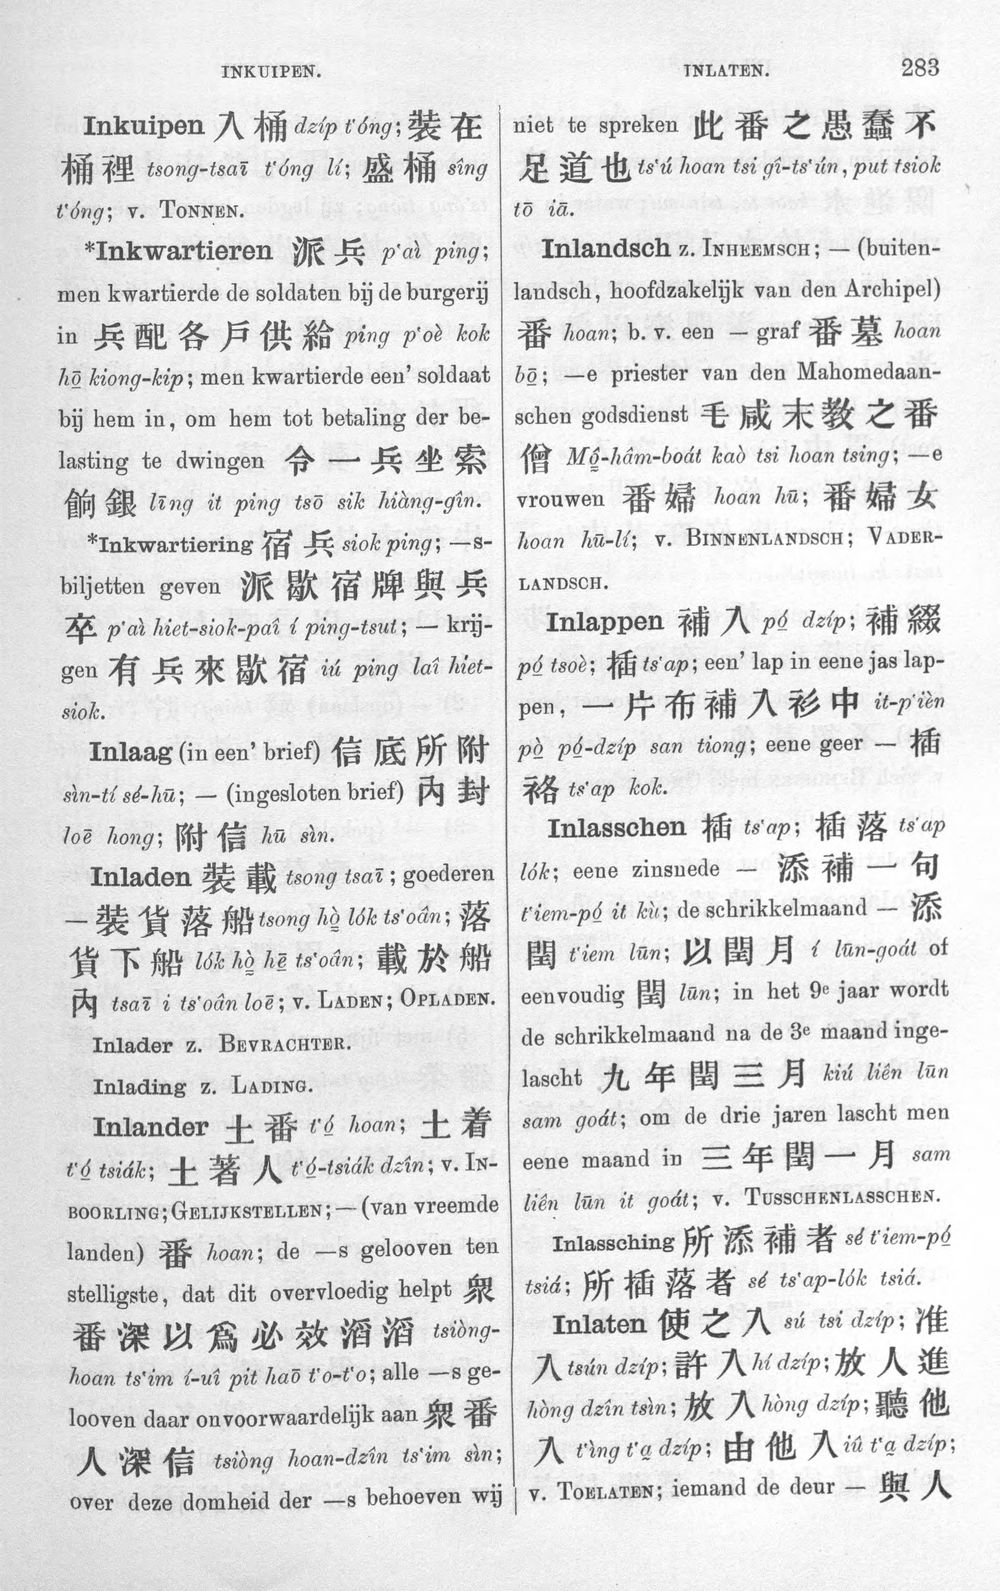 INKUIPEN.
INLATEN.
283
Inkuipen 入桶 dzíp t'óng; 裝在
桶裡 tsong-tsaī t'óng lí; 盛桶 sîng
t'óng; v. TONNEN.
*Inkwartieren 派兵 p'aì ping;
men kwartierde de soldaten bij de burgerij
in 兵配各戶供給 ping p'oè kok
hō͘ kiong-kip; men kwartierde een' soldaat
bij hem in, om hem tot betaling der be-
lasting te dwingen 令一兵坐索
餉銀 līng it ping tsō sik hiàng-gîn.
*Inkwartiering 宿兵 siok ping; —s-
biljetten geven 派歇宿牌與兵
卒 p'aì hiet-siok-paî í ping-tsut; — krij-
gen 有兵來歇宿 iú ping laî hiet-
siok.
Inlaag (in een' brief) 信底所附
sìn-tí sé-hū; — (ingesloten brief) 內封
loē hong; 附信 hū sìn.
Inladen 裝載 tsong tsaī; goederen
— 裝貨落船 tsong hò̤ lók ts'oân; 落
貨下船 lók hò̤ hē̤ ts'oân; 載於船
內 tsaī i ts'oân loē; v. LADEN; OPLADEN.
Inlader z. BEVRACHTER.
Inlading z. LADING.
Inlander 土番 t'ó͘ hoan; 土着
t'ó͘ tsiák; 土著人 t'ó͘-tsiák dzîn; v. IN-
BOORLING; GELIJKSTELLEN; — (van vreemde
landen) 番 hoan; de —s gelooven ten
stelligste, dat dit overvloedig helpt 衆
番深以爲必效滔滔 tsiòng-
hoan ts'im í-uî pit haō t'o-t'o; alle —s ge-
looven daar onvoorwaardelijk aan 衆番
人深信 tsiòng hoan-dzîn ts'im sìn;
over deze domheid der —s behoeven wij
niet te spreken 此番之愚蠢不
足道也 ts'ú hoan tsi gî-ts'ún, put tsiok
tō iā.
Inlandsch z. INHEEMSCH; — (buiten-
landsch, hoofdzakelijk van den Archipel)
番 hoan; b. v. een — graf 番墓 hoan
bō͘; —e priester van den Mahomedaan-
schen godsdienst 毛咸末教之番
僧 Mô͘-hâm-boát kaò tsi hoan tsing; —e
vrouwen 番婦 hoan hū; 番婦女
hoan hū-lí; v. BINNENLANDSCH; VADER-
LANDSCH.
Inlappen 補入 pó͘ dzíp; 補綴
pó͘ tsoè; 插 ts'ap; een' lap in eene jas lap-
pen, 一片布補入衫中 it-p'ièn
pò͘ pó͘-dzíp san tiong; eene geer — 插
袼 ts'ap kok.
Inlasschen 插 ts'ap; 插落 ts'ap
lók; eene zinsnede — 添補一句
t'iem-pó͘ it kù; de schrikkelmaand — 添
閏 t'iem lūn; 以閏月 í lūn-goát of
eenvoudig 閏 lūn; in het 9e jaar wordt
de schrikkelmaand na de 3e maand inge-
lascht 九年閏三月 kiú liên lūn
sam goát; om de drie jaren lascht men
eene maand in 三年閏一月 sam
liên lūn it goát; v. TUSSCHENLASSCHEN.
Inlassching 所添補者 sé t'iem-pó͘
tsiá; 所插落者 sé ts'ap-lók tsiá.
Inlaten 使之入 sú tsi dzíp; 准
入 tsún dzíp; 許入 hí dzíp; 放人進
hòng dzîn tsìn; 放入 hòng dzíp; 聽他
入 t'ìng t'a̤ dzíp; 由他入 iû t'a̤ dzíp;
v. TOELATEN; iemand de deur — 與人